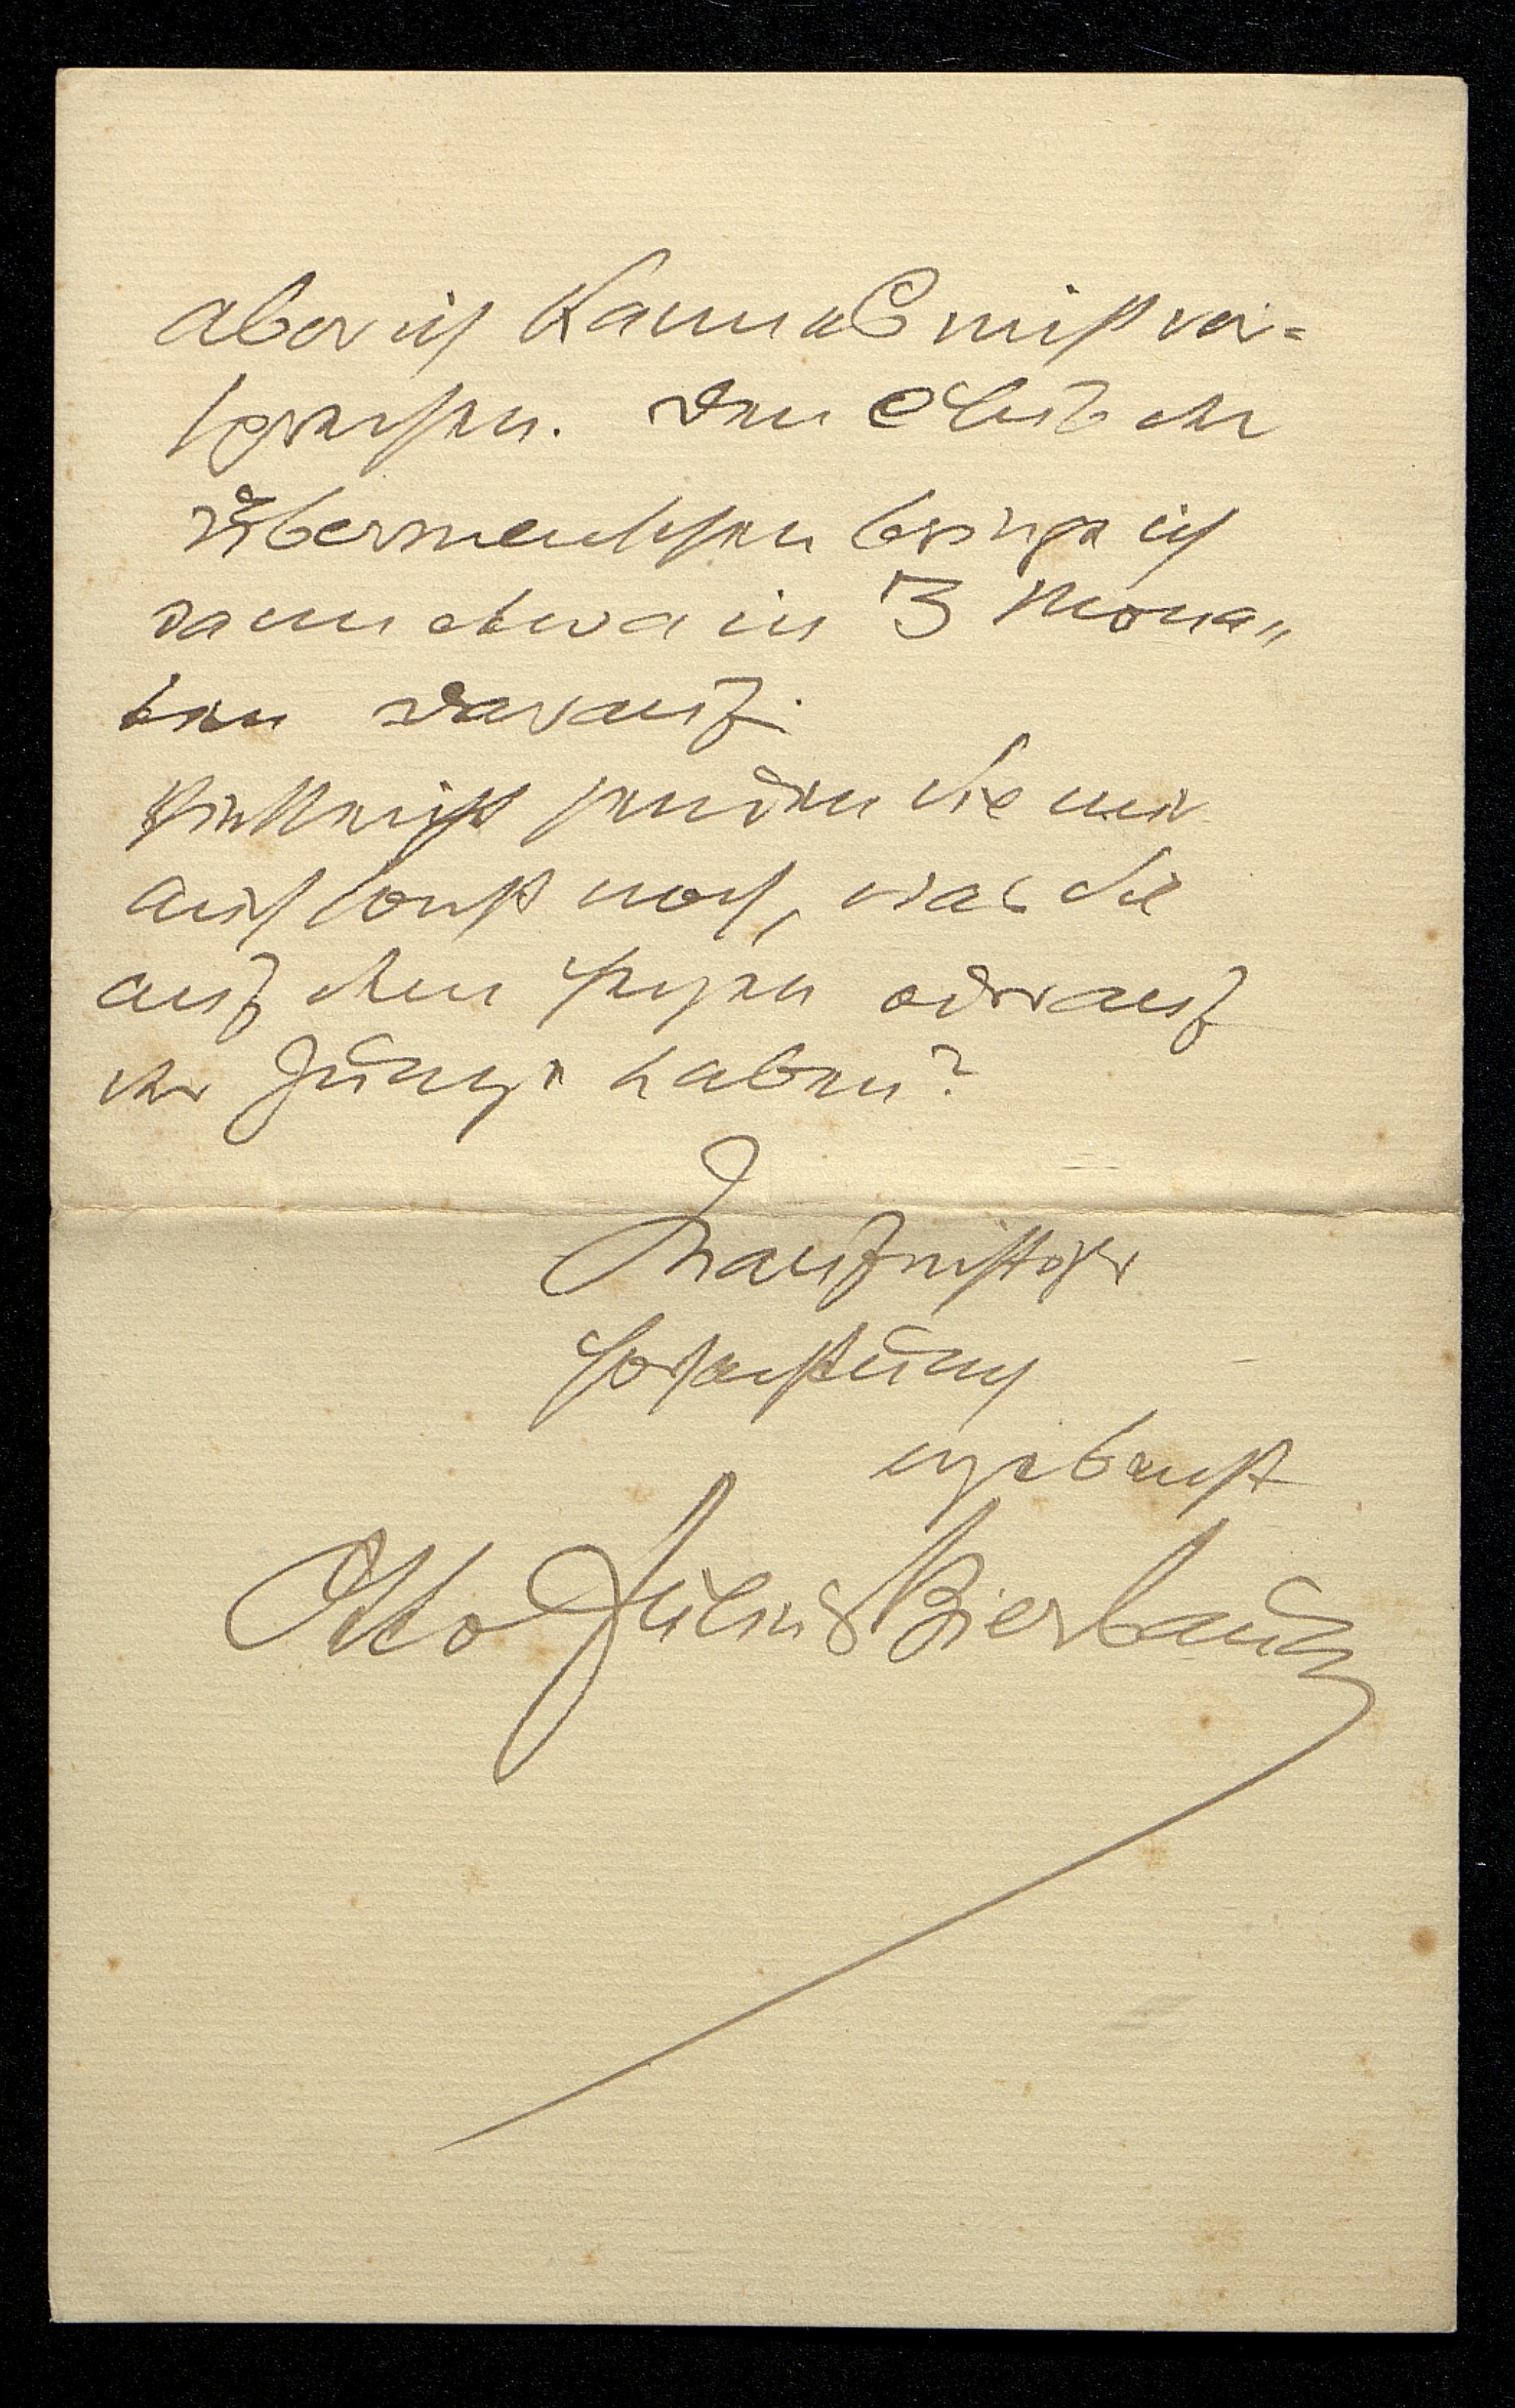 aber ich kann es nicht ver-
sprechen. Den Club der
Übermenschen bringe ich
dann etwa in 3 Mona„
ten darauf.
Vielleicht senden Sie mir
auch sonst noch, was Sie
auf dem Herzen oder auf
der Zunge haben?
In
Hochachtung
ergebenst
Otto Julius Bierbaum